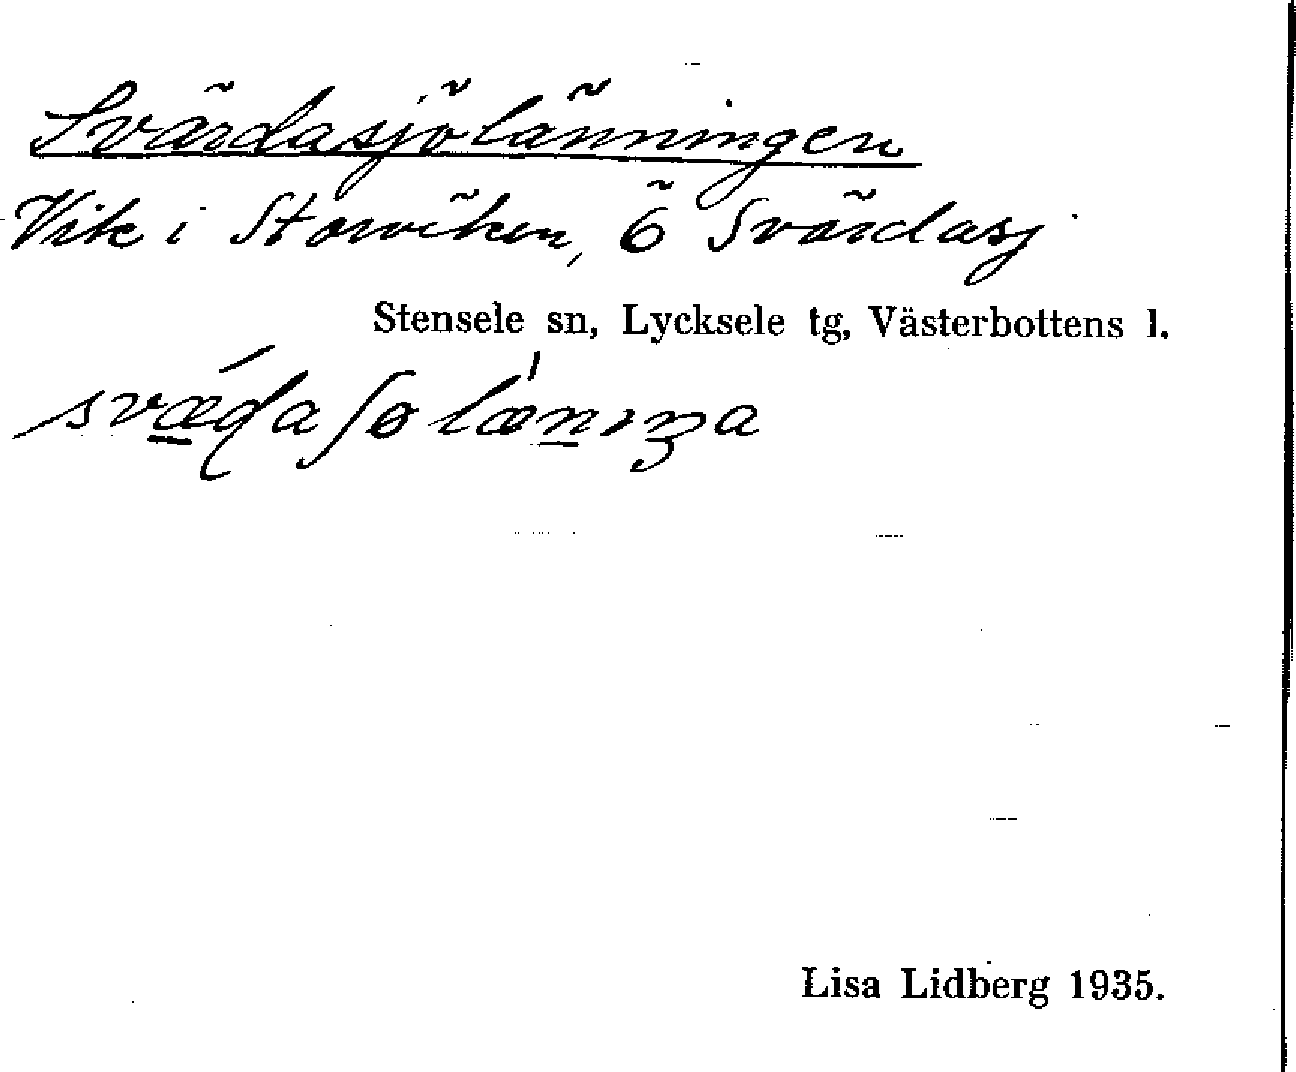 Svärdasjölänningen
Vik i Storviken, Ö Svärdasj
Stensele sn, Lycksele tg, Västerbottens l.
Lisa Lidberg 1935.